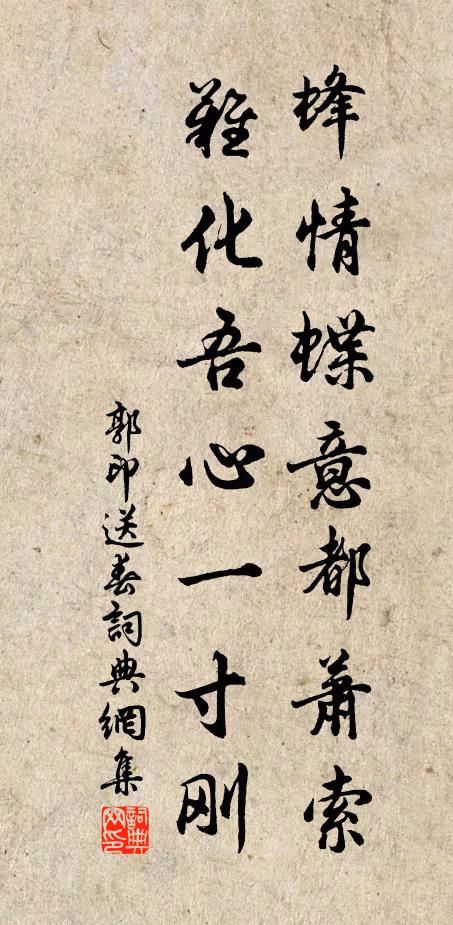 蜂情蝶意都萧索
难化吾心一寸刚
郭印送春詞典網集
詞典網印